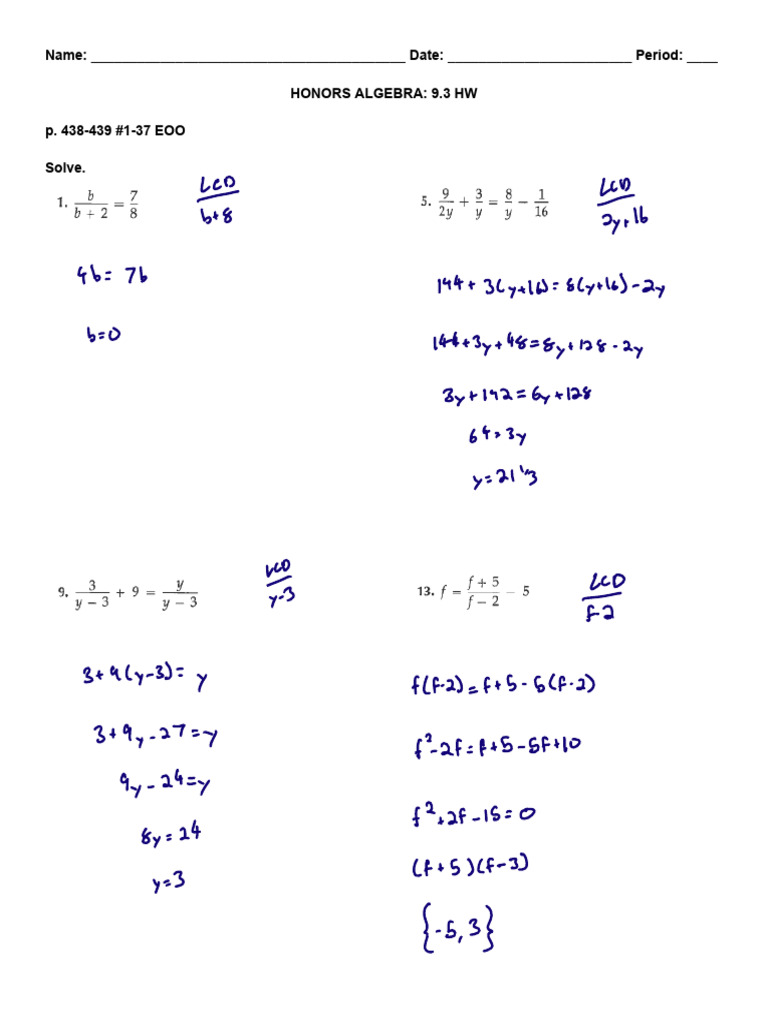 Name: ________________________________________ Date: ________________________ Period: ____
HONORS ALGEBRA: 9.3 HW
p. 438-439 #1-37 EOO
Solve.
1. b/(b + 2) = 7/8
LCD
b+8
4b = 7b
b=0
5. 9/(2y) + 3/y = 8/y − 1/16
LCD
2y+16
144 + 3(y+16) = 8(y+16) - 2y
144+3y+48=8y+128-2y
3y+192=6y+128
64=3y
y=21 1/3
9. 3/(y − 3) + 9 = y/(y − 3)
LCD
y-3
3+9(y-3)= y
3+9y-27=y
9y-24=y
8y=24
y=3
13. f = (f + 5)/(f − 2) − 5
LCD
f-2
f(f-2)=f+5-5(f-2)
f²-2f=f+5-5f+10
f²+2f-15=0
(f+5)(f-3)
{-5,3}